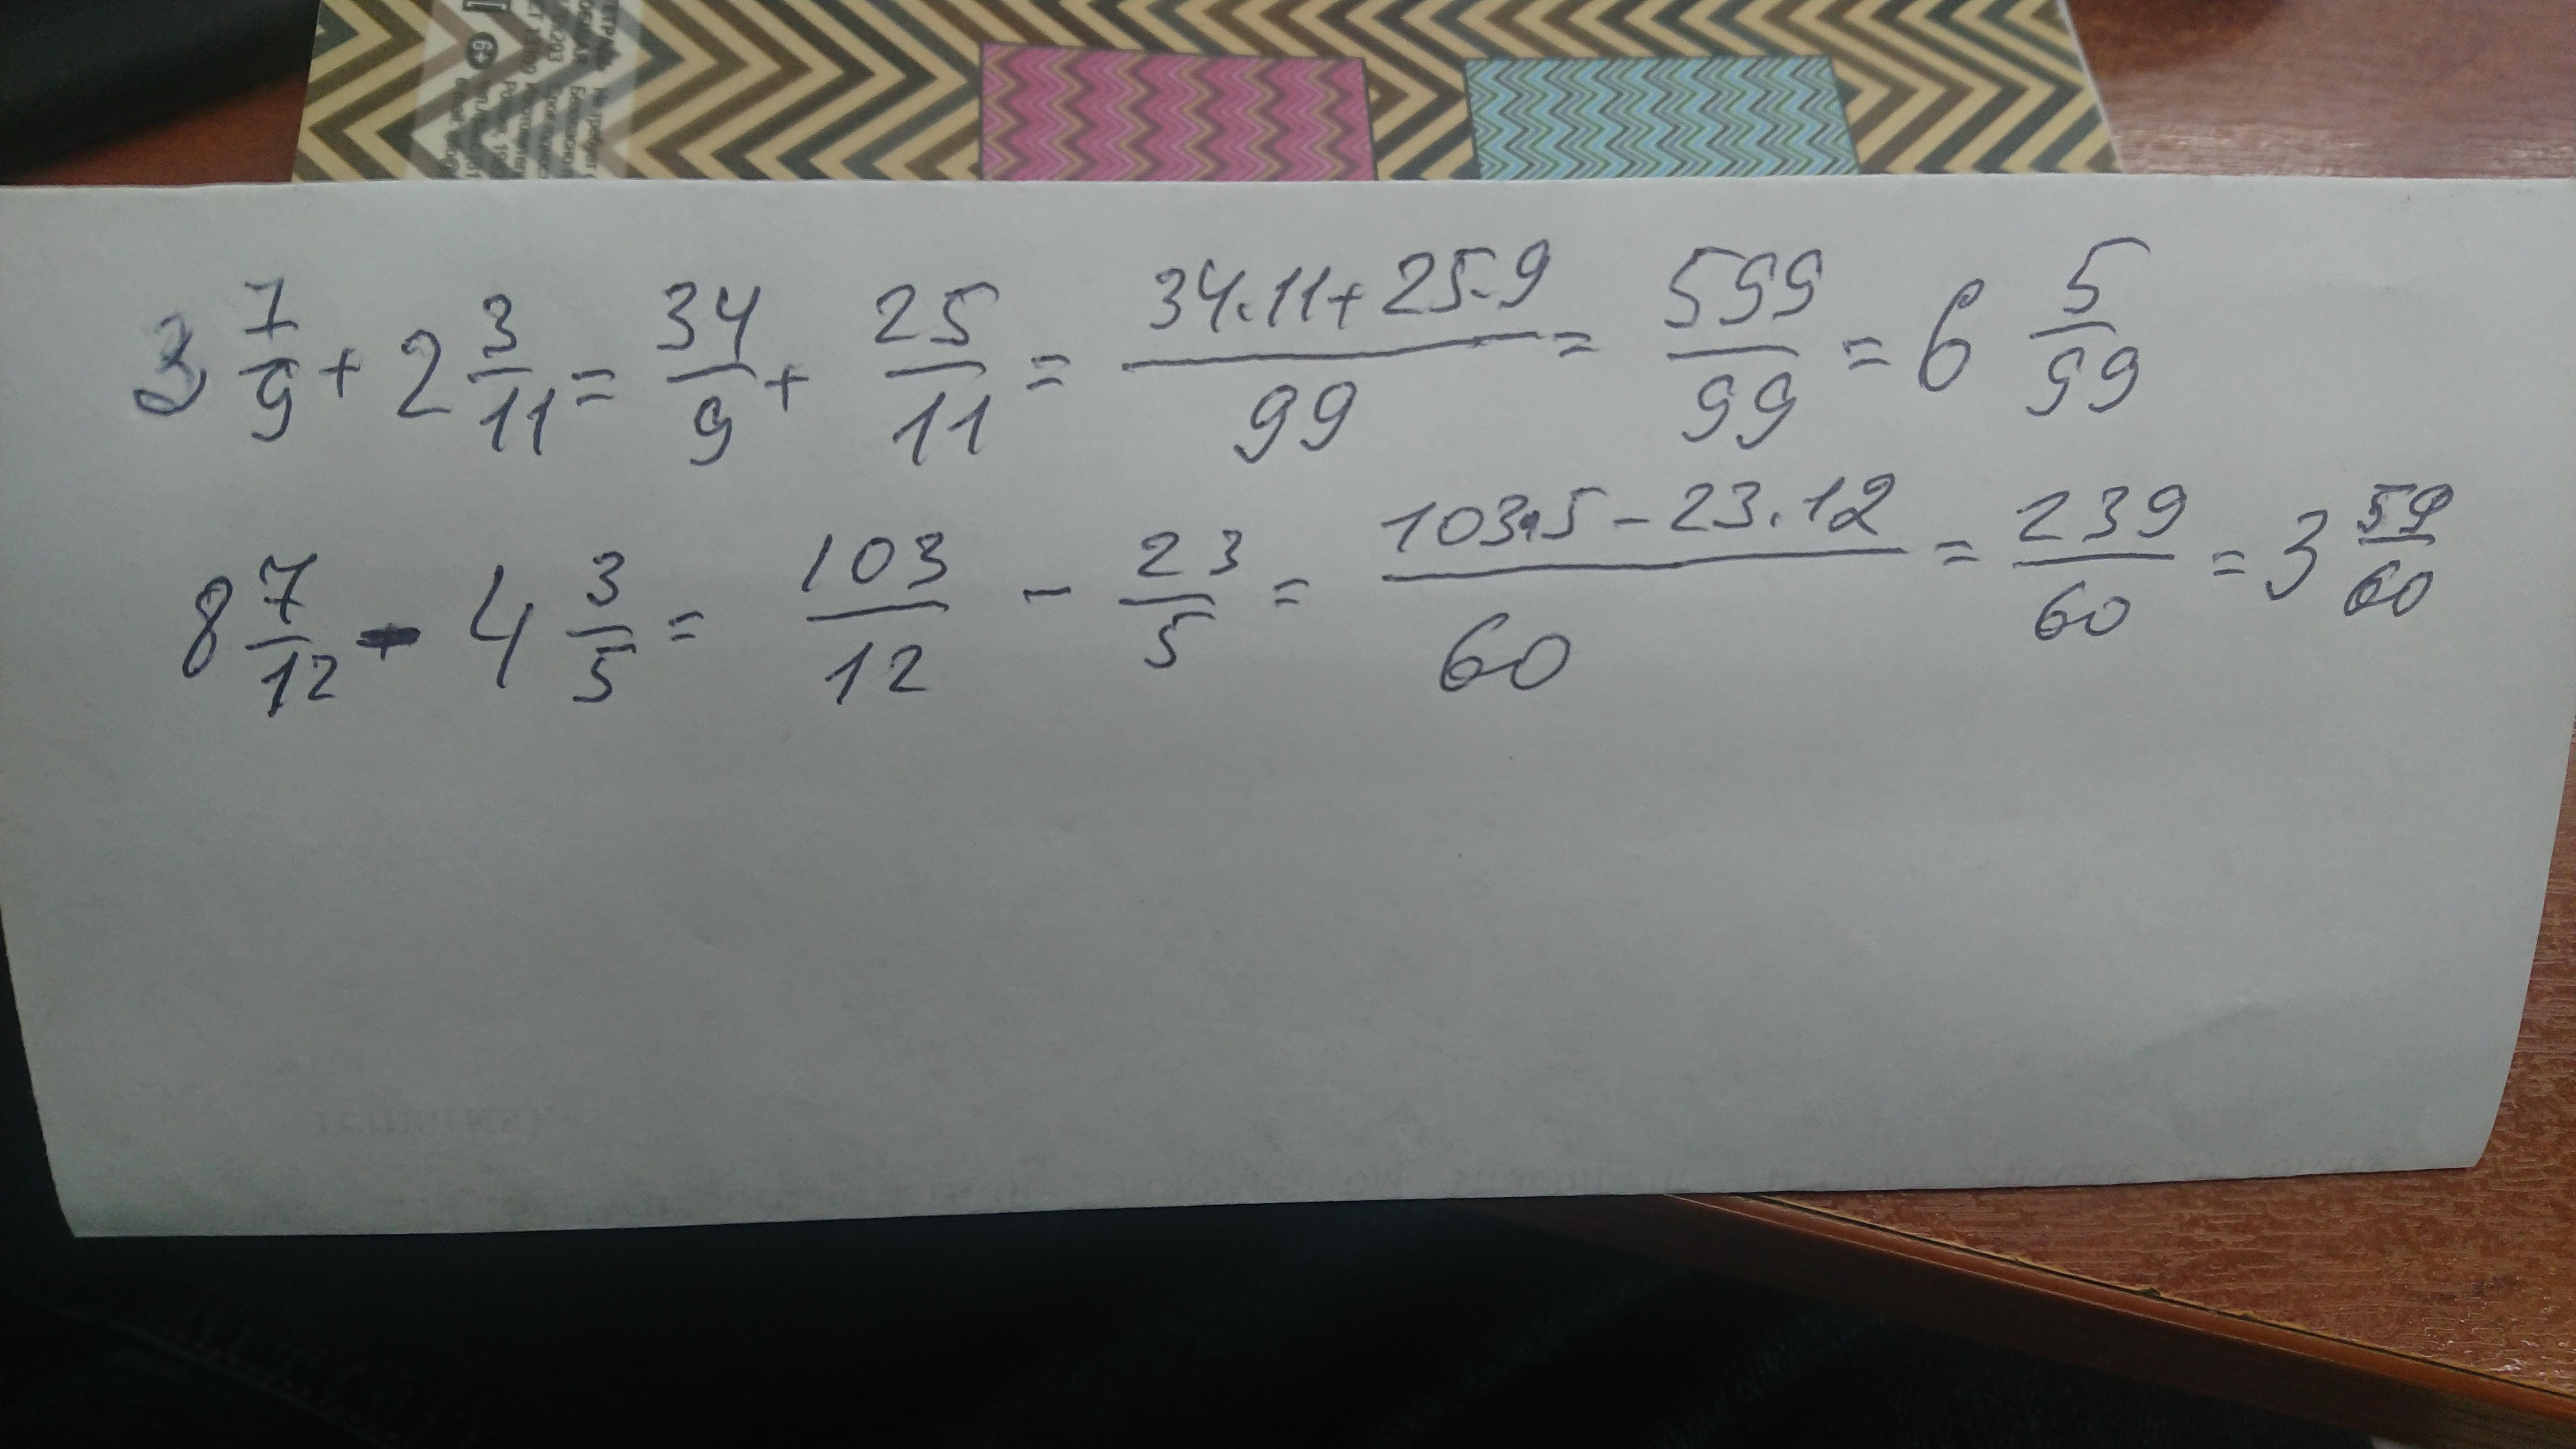 3 7/9 + 2 3/11 = 34/9 + 25/11 = 34·11+25·9/99 = 599/99 = 6 5/99
8 7/12 - 4 3/5 = 103/12 - 23/5 = 103·5-23·12/60 = 239/60 = 3 59/60